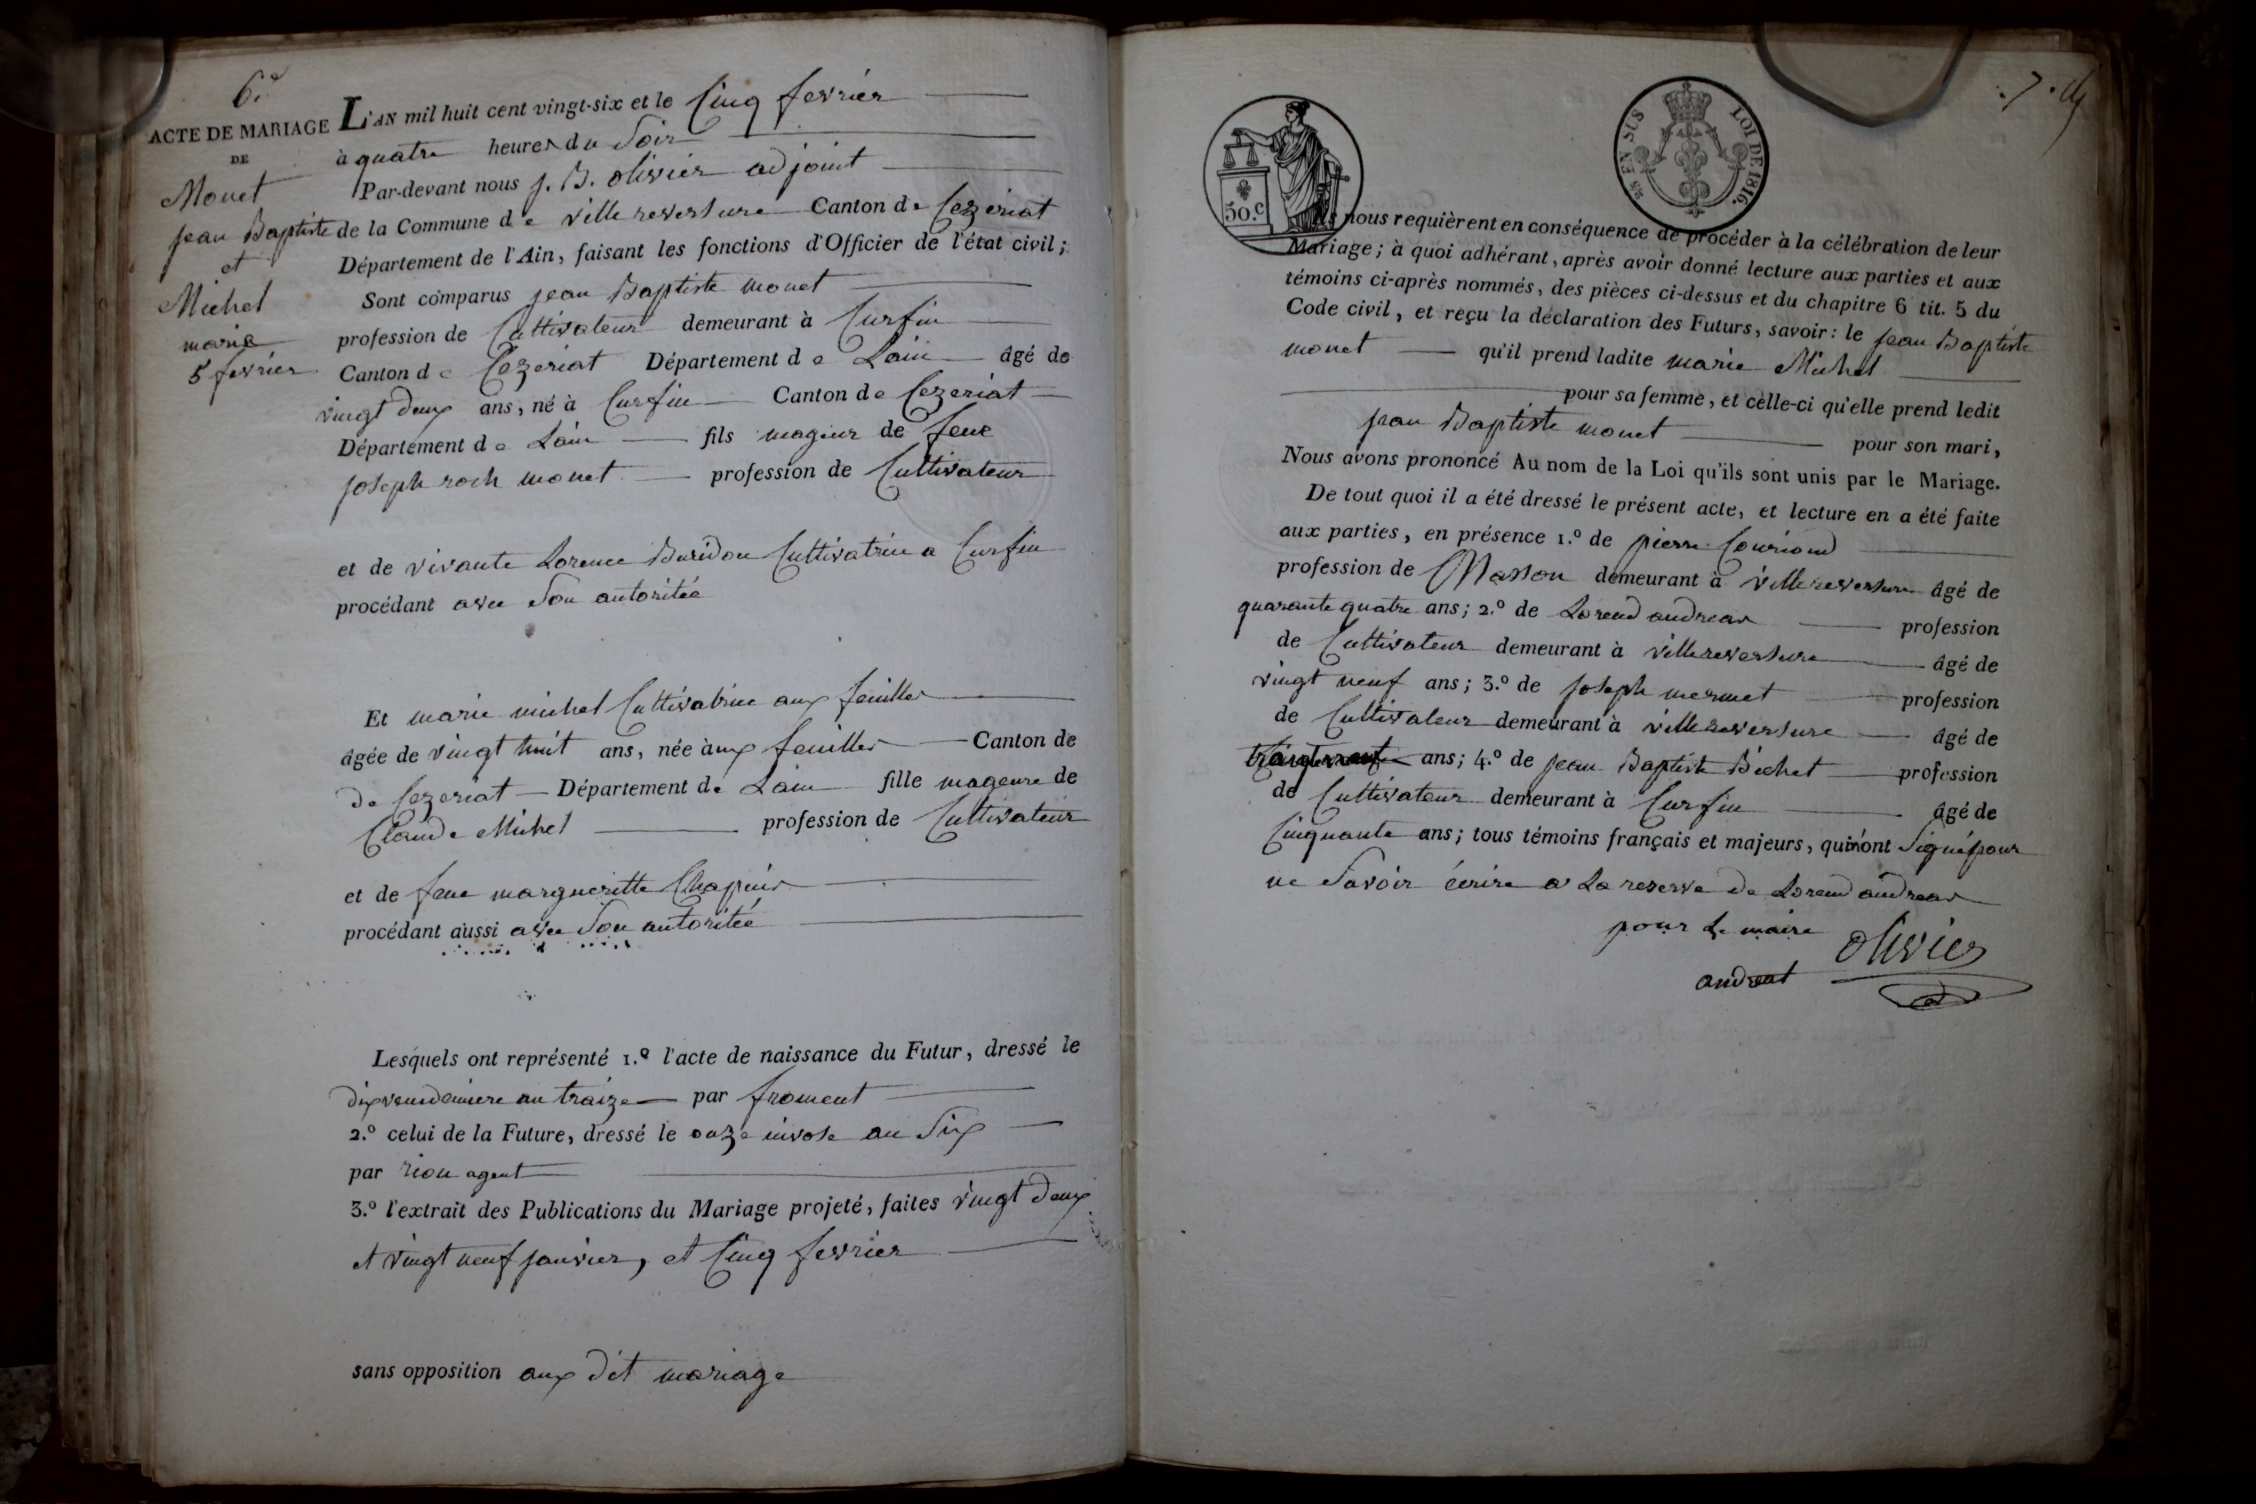 6.e
ACTE DE MARIAGE
DE
Monet
jean Baptiste
et
Michel
marie
5 fevrier
L'AN mil huit cent vingt-six et le Cinq fevrier
à quatre heures du Soir
Par-devant nous j. B. olivier adjoint
de la Commune de villereversure Canton de Cezeriat
Département de l'Ain, faisant les fonctions d'Officier de l'état civil;
Sont comparus jean Baptiste monet
profession de Cultivateur demeurant à Curfin
Canton de Cezeriat Département de Lain âgé de
vingt deux ans, né à Curfin Canton de Cezeriat
Département de Lain fils mageur de feue
joseph roch monet profession de Cultivateur
et de vivante Lorence Buridon Cultivatrice a Curfin
procédant avec Son autoritée
Et marie michel Cultivatrice aux feuilles
âgée de vingt huit ans, née àux feuilles Canton de
de Cezeriat Département de Lain fille mageure de
Claude Michel profession de Cultivateur
et de feue margueritte Chapuis
procédant aussi avec Son autoritée
Lesquels ont représenté 1.º l'acte de naissance du Futur, dressé le
dix vendemiere an traize par froment
2.º celui de la Future, dressé le onze nivose an Six
par riou agent
3.º l'extrait des Publications du Mariage projeté, faites vingt deux
et vingt neuf janvier, et Cinq fevrier
sans opposition aux dit mariage
50.c
25 EN SUS
LOI DE 1816.
7.
Ils nous requièrent en conséquence de procéder à la célébration de leur
Mariage; à quoi adhérant, après avoir donné lecture aux parties et aux
témoins ci-après nommés, des pièces ci-dessus et du chapitre 6 tit. 5 du
Code civil, et reçu la déclaration des Futurs, savoir: le jean Baptiste
monet qu'il prend ladite marie Michel
pour sa femme, et celle-ci qu'elle prend ledit
jean Baptiste monet pour son mari,
Nous avons prononcé Au nom de la Loi qu'ils sont unis par le Mariage.
De tout quoi il a été dressé le présent acte, et lecture en a été faite
aux parties, en présence 1.º de pierre Couriond
profession de Masson demeurant à villereversure âgé de
quarante quatre ans; 2.º de Lorend andreas profession
de Cultivateur demeurant à villereversure âgé de
vingt neuf ans; 3.º de joseph mermet profession
de Cultivateur demeurant à villereversure âgé de
ans; 4.º de jean Baptiste Bichet profession
de Cultivateur demeurant à Curfin âgé de
Cinquante ans; tous témoins français et majeurs, qui n'ont Signé pour
ne Savoir écrire a La reserve de Lorend andreas
pour Le maire
olivier
andreat